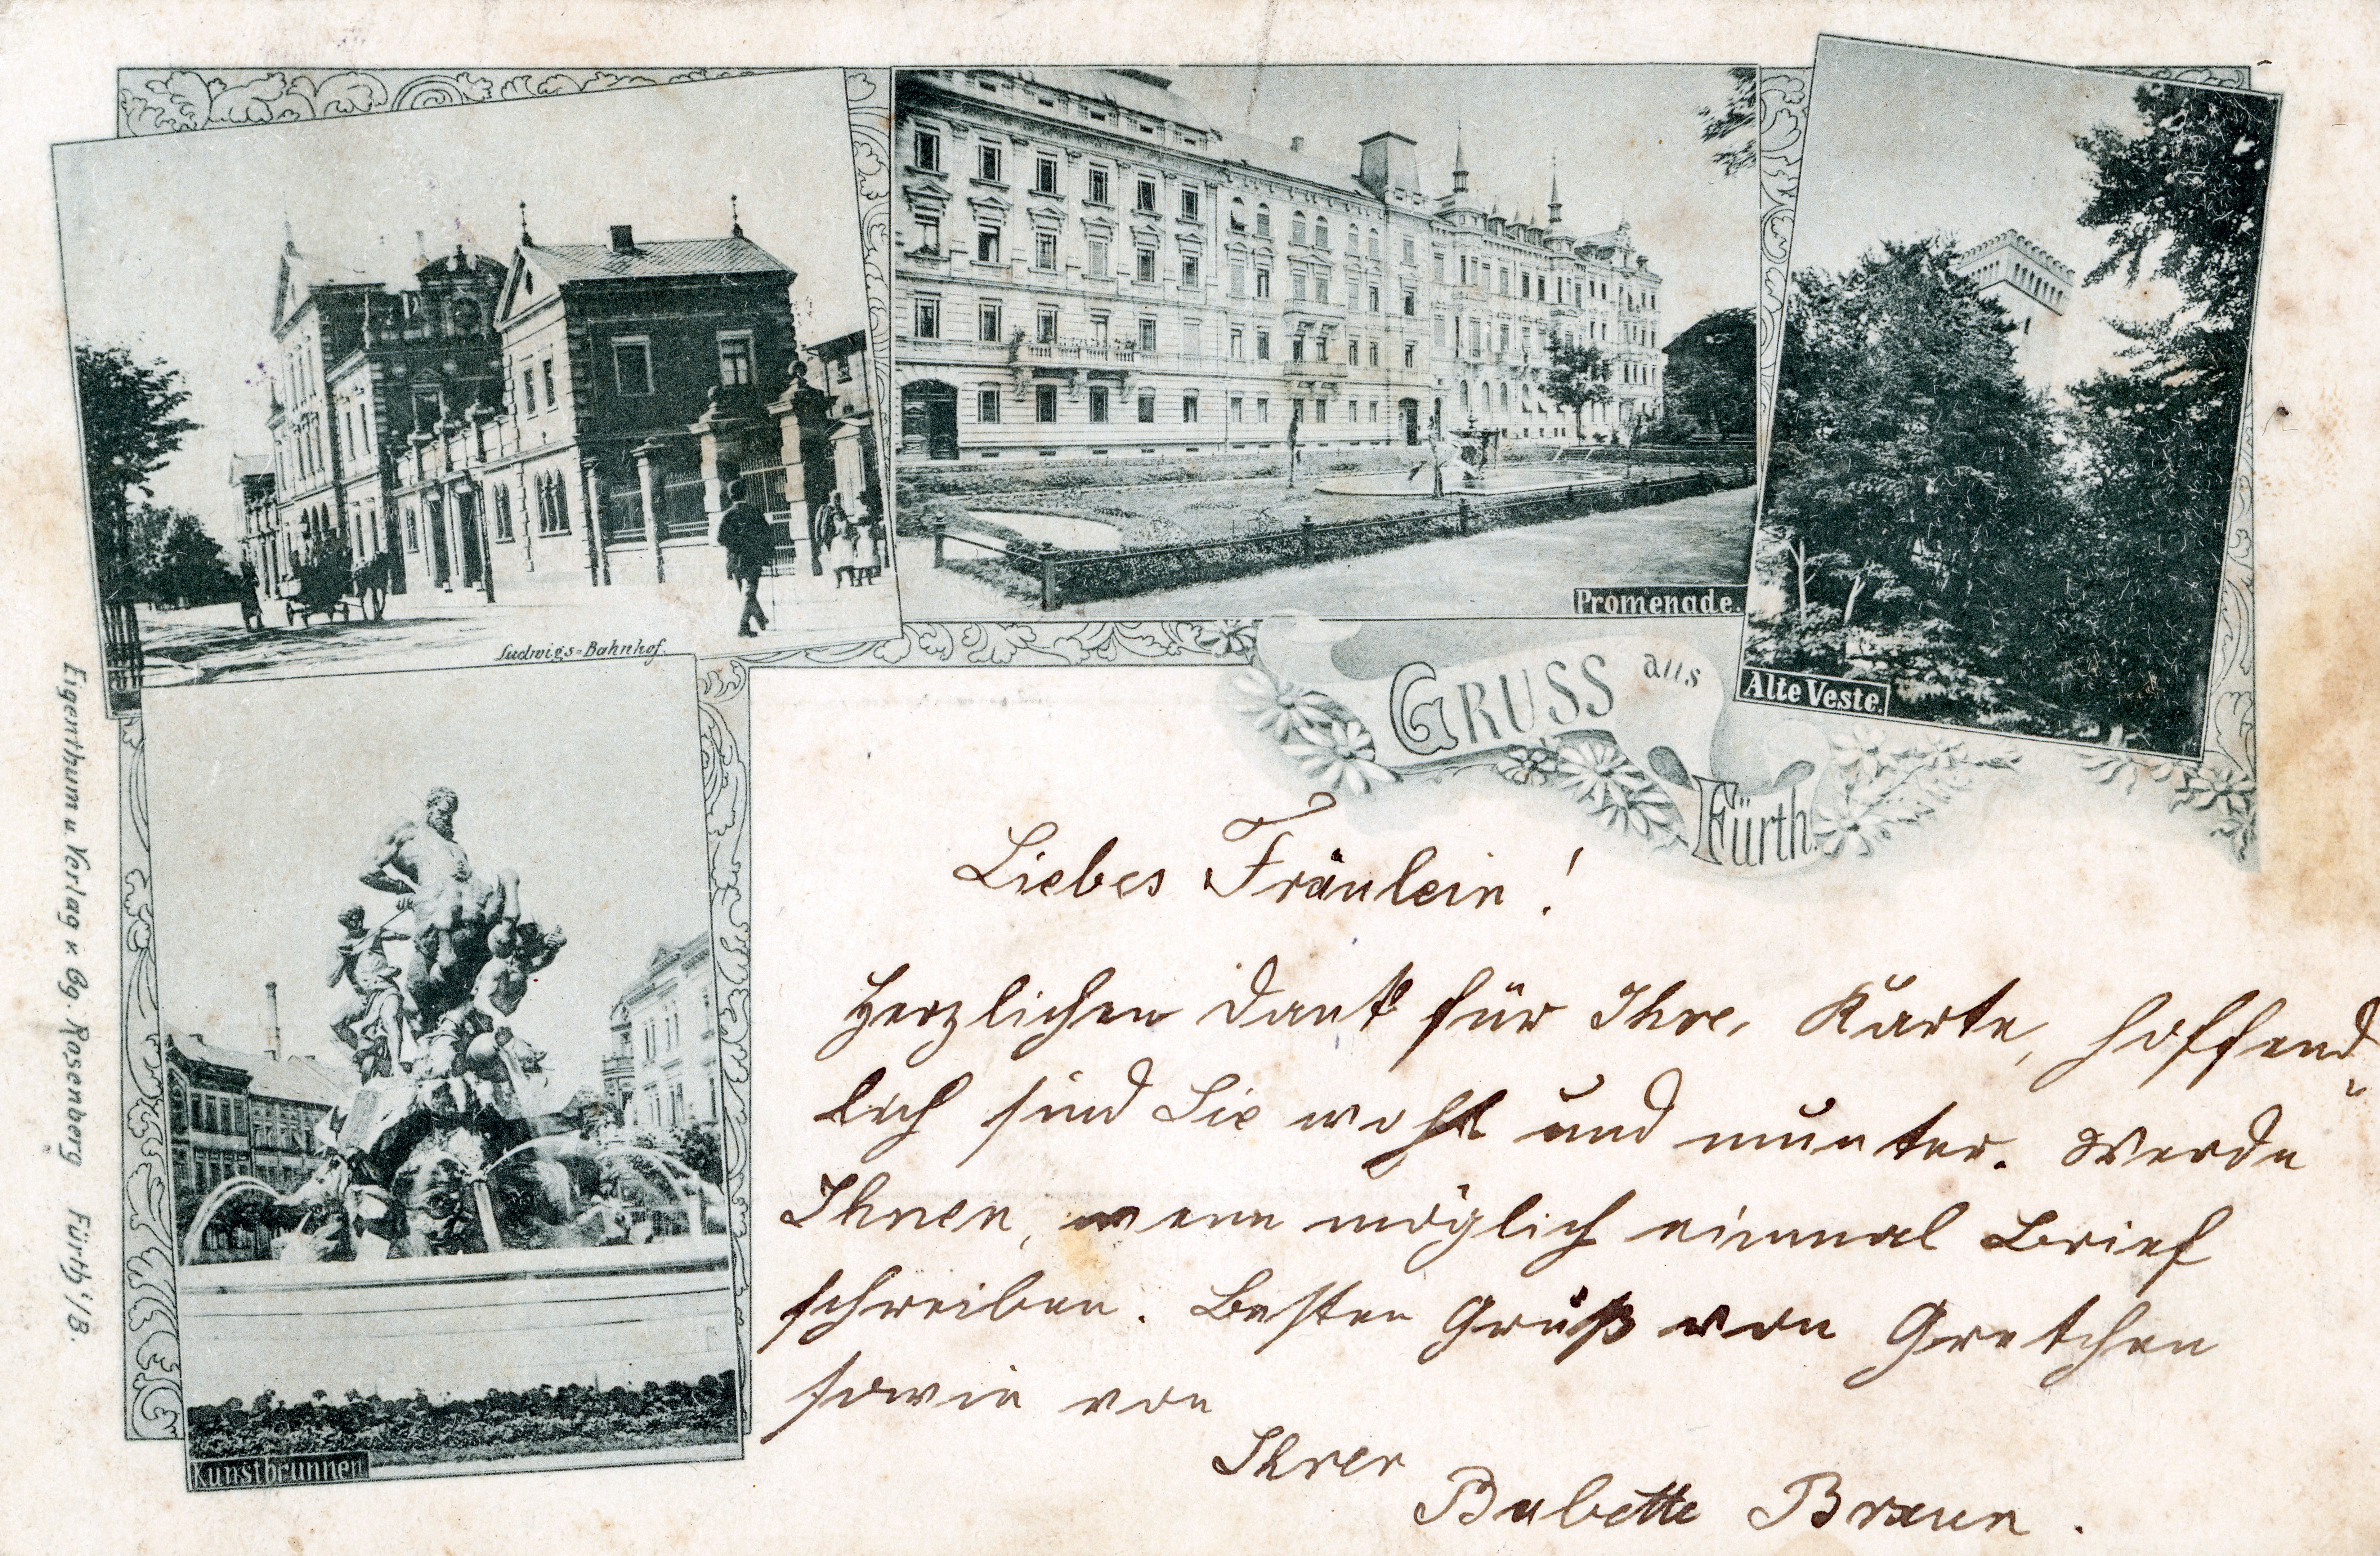 Ludwigs=Bahnhof.
Promenade.
Alte Veste.
GRUSS aus
Fürth.
Kunstbrunnen
Eigenthum u Verlag v. Gg. Rosenberg Fürth i/B.
Liebes Fräulein!
Herzlichen Dank für Ihre, Karte, hoffend„
lich sind Sie wohl und munter. Werde
Ihnen, wenn möglich einmal Brief
schreiben. Besten Gruß von Gretchen
sowie von
Ihrer
Babette Braun.